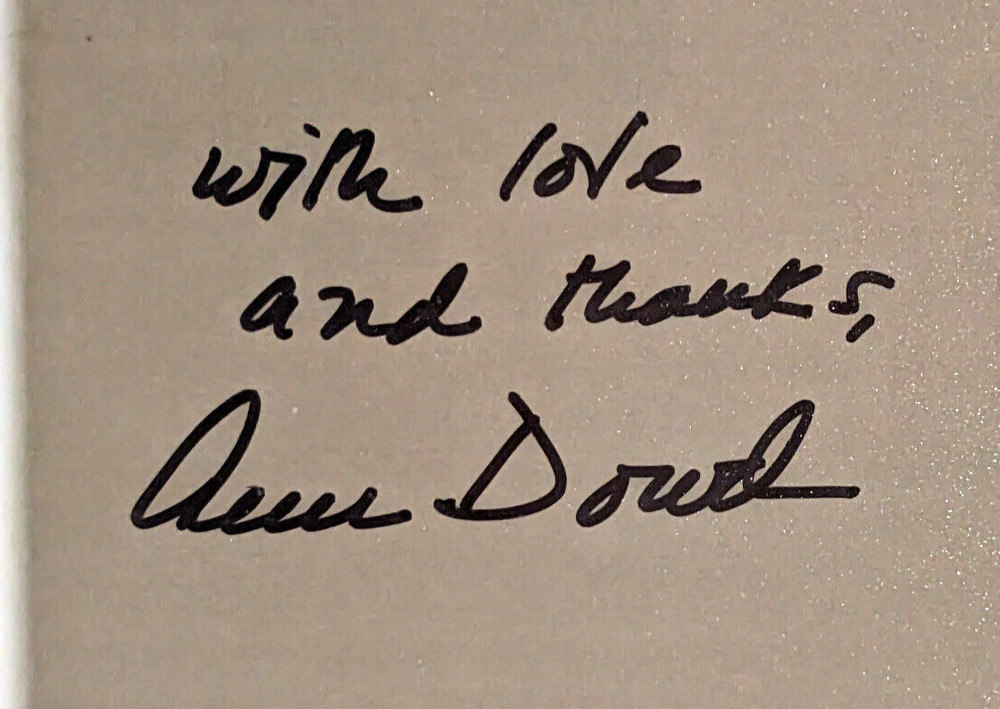 with love
and thanks,
Ann Dowd